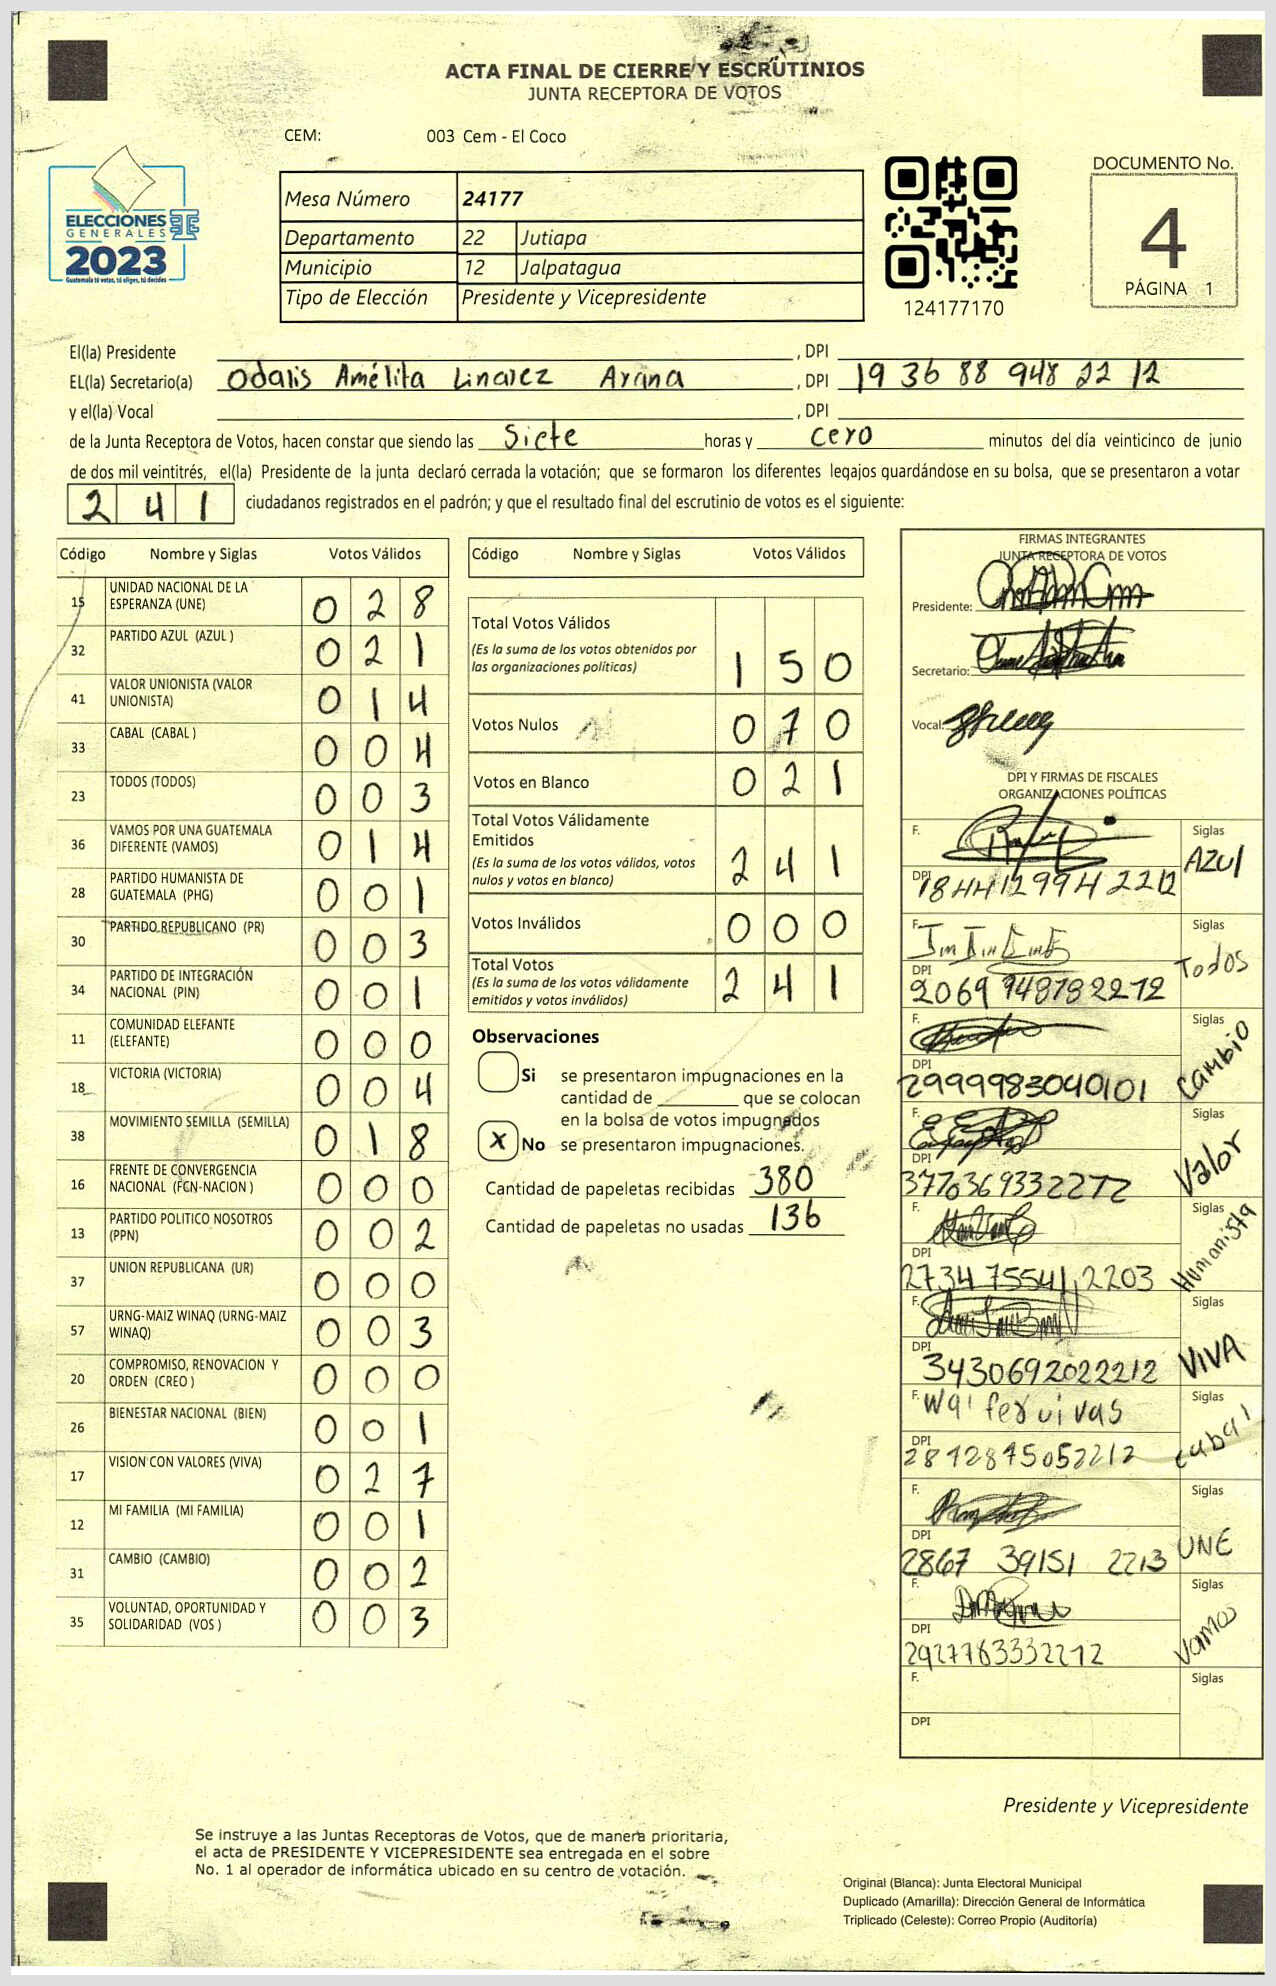 ACTA FINAL DE CIERRE Y ESCRUTINIOS
JUNTA RECEPTORA DE VOTOS
CEM: 003 Cem - El Coco
ELECCIONES
GENERALES
2023
Guatemala tú votas, tú eliges, tú decides
Mesa Número 24177
Departamento 22 Jutiapa
Municipio 12 Jalpatagua
Tipo de Elección Presidente y Vicepresidente
124177170
DOCUMENTO No.
4
PÁGINA 1
El(la) Presidente , DPI
EL(la) Secretario(a) Odalis Amélita Linarez Arana , DPI 19 36 88 948 22 12
y el(la) Vocal , DPI
de la Junta Receptora de Votos, hacen constar que siendo las Siete horas y cero minutos del día veinticinco de junio
de dos mil veintitrés, el(la) Presidente de la junta declaró cerrada la votación; que se formaron los diferentes legajos guardándose en su bolsa, que se presentaron a votar
2 4 1 ciudadanos registrados en el padrón; y que el resultado final del escrutinio de votos es el siguiente:
Código Nombre y Siglas Votos Válidos
15 UNIDAD NACIONAL DE LA ESPERANZA (UNE) 0 2 8
32 PARTIDO AZUL (AZUL ) 0 2 1
41 VALOR UNIONISTA (VALOR UNIONISTA) 0 1 4
33 CABAL (CABAL ) 0 0 4
23 TODOS (TODOS) 0 0 3
36 VAMOS POR UNA GUATEMALA DIFERENTE (VAMOS) 0 1 4
28 PARTIDO HUMANISTA DE GUATEMALA (PHG) 0 0 1
30 PARTIDO REPUBLICANO (PR) 0 0 3
34 PARTIDO DE INTEGRACIÓN NACIONAL (PIN) 0 0 1
11 COMUNIDAD ELEFANTE (ELEFANTE) 0 0 0
18 VICTORIA (VICTORIA) 0 0 4
38 MOVIMIENTO SEMILLA (SEMILLA) 0 1 8
16 FRENTE DE CONVERGENCIA NACIONAL (FCN-NACION ) 0 0 0
13 PARTIDO POLITICO NOSOTROS (PPN) 0 0 2
37 UNION REPUBLICANA (UR) 0 0 0
57 URNG-MAIZ WINAQ (URNG-MAIZ WINAQ) 0 0 3
20 COMPROMISO, RENOVACION Y ORDEN (CREO ) 0 0 0
26 BIENESTAR NACIONAL (BIEN) 0 0 1
17 VISION CON VALORES (VIVA) 0 2 7
12 MI FAMILIA (MI FAMILIA) 0 0 1
31 CAMBIO (CAMBIO) 0 0 2
35 VOLUNTAD, OPORTUNIDAD Y SOLIDARIDAD (VOS ) 0 0 3
Código Nombre y Siglas Votos Válidos
Total Votos Válidos
(Es la suma de los votos obtenidos por
las organizaciones políticas) 1 5 0
Votos Nulos 0 7 0
Votos en Blanco 0 2 1
Total Votos Válidamente
Emitidos
(Es la suma de los votos válidos, votos
nulos y votos en blanco) 2 4 1
Votos Inválidos 0 0 0
Total Votos
(Es la suma de los votos válidamente
emitidos y votos inválidos) 2 4 1
Observaciones
Si se presentaron impugnaciones en la
cantidad de ________ que se colocan
en la bolsa de votos impugnados
X No se presentaron impugnaciones.
Cantidad de papeletas recibidas 380
Cantidad de papeletas no usadas 136
FIRMAS INTEGRANTES
JUNTA RECEPTORA DE VOTOS
Presidente:
Secretario:
Vocal:
DPI Y FIRMAS DE FISCALES
ORGANIZACIONES POLÍTICAS
F. Siglas
AZUL
DPI 1844129942212
F. Siglas
Todos
DPI 2069 948782212
F. Siglas
Cambio
DPI 2999983040101
F. Siglas
Valor
DPI 3770369332212
F. Siglas
Humanista
DPI 2734 75541 2203
F. Siglas
VIVA
DPI 3430692022212
F. Siglas
cabal
DPI 2872875052212
F. Siglas
UNE
DPI 2867 39151 2213
F. Siglas
Vamos
DPI 2927763332212
F. Siglas
DPI
Presidente y Vicepresidente
Se instruye a las Juntas Receptoras de Votos, que de manera prioritaria,
el acta de PRESIDENTE Y VICEPRESIDENTE sea entregada en el sobre
No. 1 al operador de informática ubicado en su centro de votación.
Original (Blanca): Junta Electoral Municipal
Duplicado (Amarilla): Dirección General de Informática
Triplicado (Celeste): Correo Propio (Auditoría)